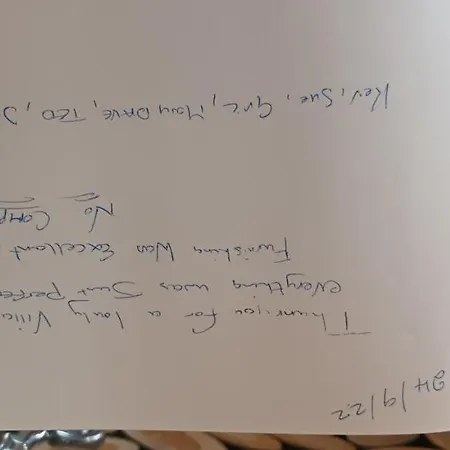 24/9/22
Thankyou for a lovly Villa
everything was Just perfe
Furnishing Was Excellant
No Comp
Kev, Sue, DAVE, TED,